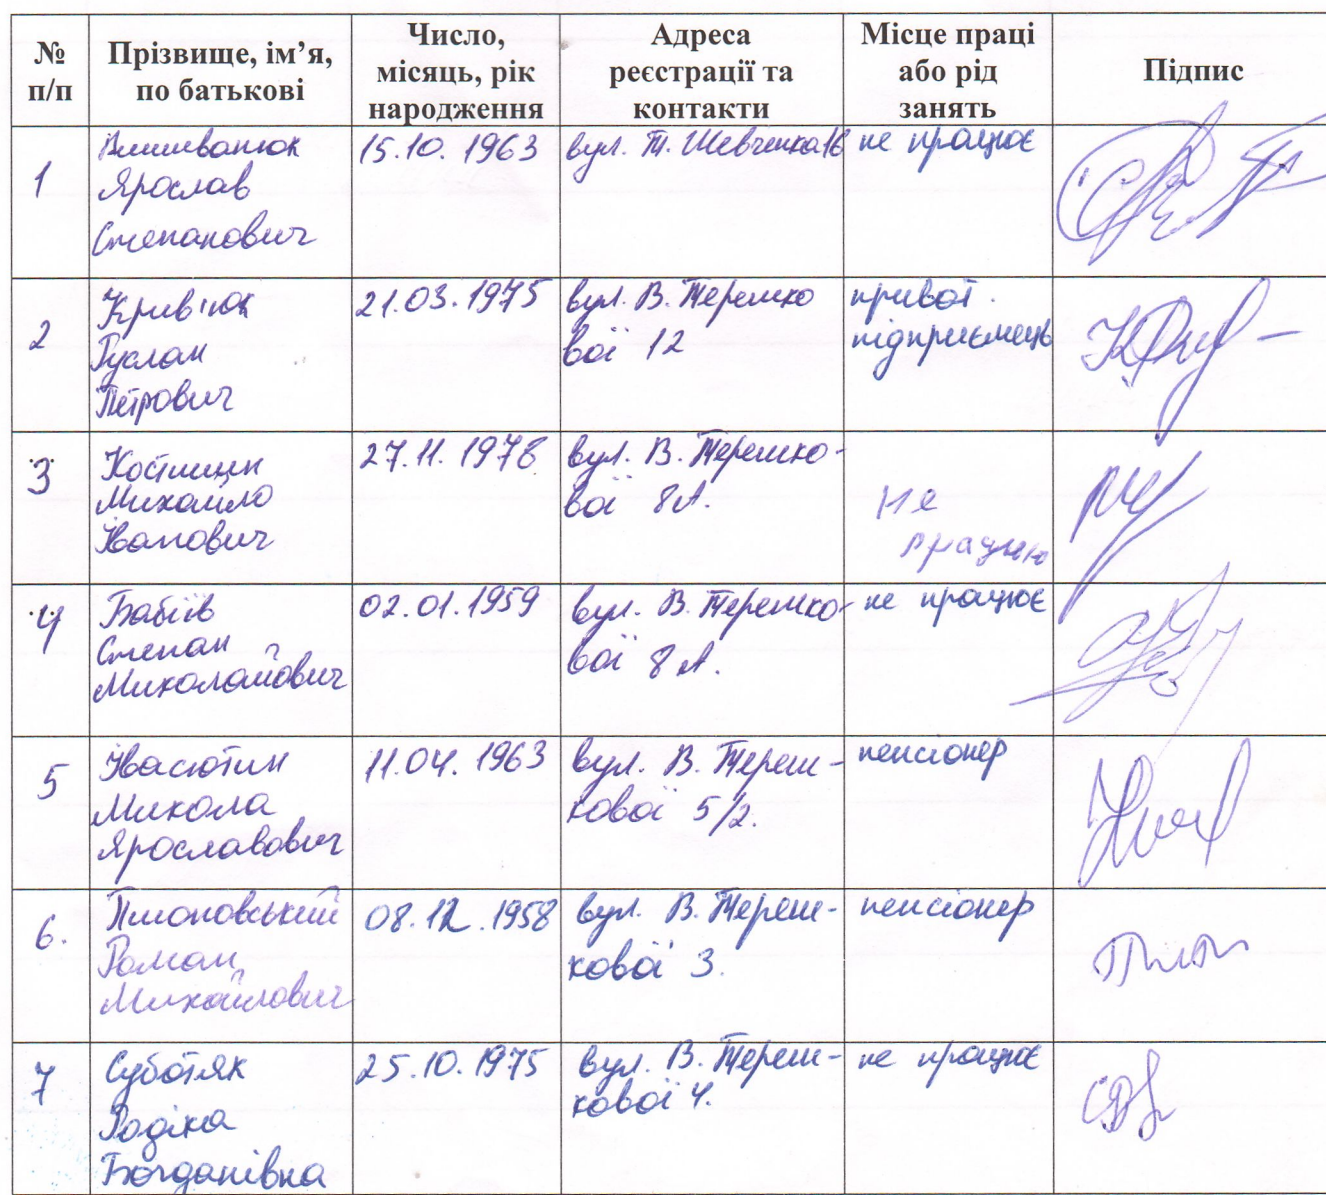 № п/п
Прізвище, ім’я, по батькові
Число, місяць, рік народження
Адреса реєстрації та контакти
Місце праці або рід занять
Підпис
1
Вишиванюк
Ярослав
Степанович
15.10.1963
вул. Т. Шевченка 16
не працює
2
Крив'юк
Руслан
Петрович
21.03.1975
вул. В. Терешко
вої 12
приват.
підприємець
3
Костишин
Михайло
Іванович
27.11.1978
вул. В. Терешко-
вої 8А.
Не
працюю
4
Бабіїв
Степан
Миколайович
02.01.1959
вул. В. Терешко-
вої 8А.
не працює
5
Івасютин
Микола
Ярославович
11.04.1963
вул. В. Тереш-
кової 5/2.
пенсіонер
6.
Роман
Михайлович
08.12.1958
вул. В. Тереш-
кової 3.
пенсіонер
7
Суботяк
Родіка
Богданівна
25.10.1975
вул. В. Тереш-
кової 4.
не працює